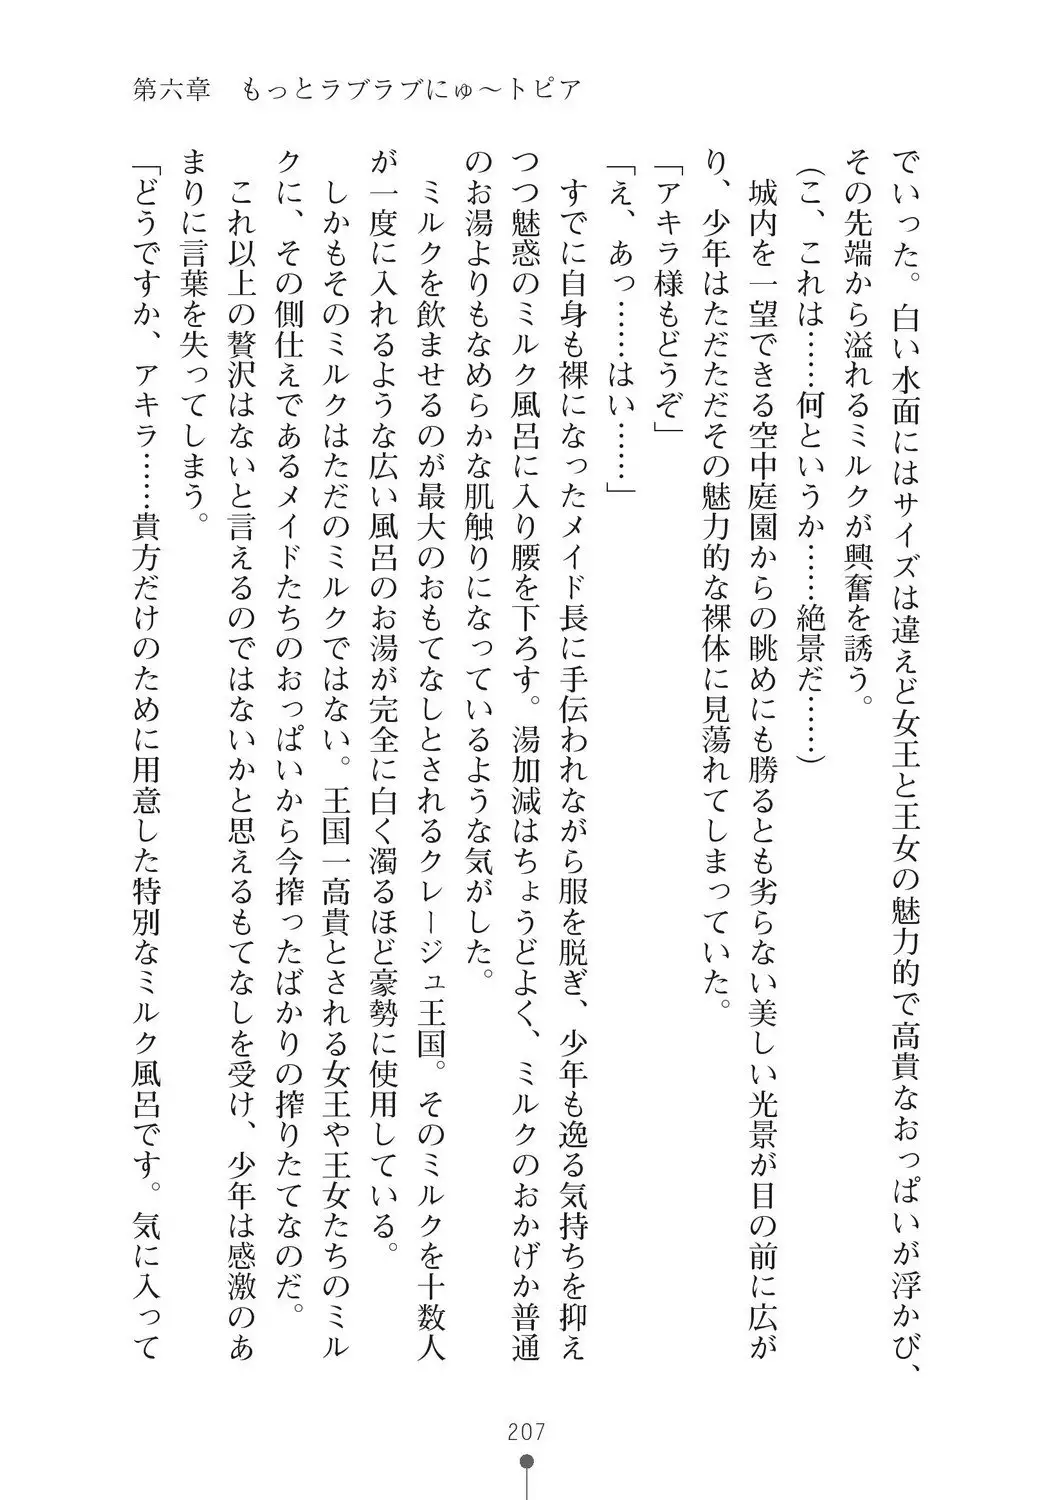 第六章　もっとラブラブにゅ～トピア
でいった。白い水面にはサイズは違えど女王と王女の魅力的で高貴なおっぱいが浮かび、
その先端から溢れるミルクが興奮を誘う。
（こ、これは……何というか……絶景だ……）
　城内を一望できる空中庭園からの眺めにも勝るとも劣らない美しい光景が目の前に広が
り、少年はただただその魅力的な裸体に見蕩れてしまっていた。
「アキラ様もどうぞ」
「え、あっ……はい……」
　すでに自身も裸になったメイド長に手伝われながら服を脱ぎ、少年も逸る気持ちを抑え
つつ魅惑のミルク風呂に入り腰を下ろす。湯加減はちょうどよく、ミルクのおかげか普通
のお湯よりもなめらかな肌触りになっているような気がした。
　ミルクを飲ませるのが最大のおもてなしとされるクレージュ王国。そのミルクを十数人
が一度に入れるような広い風呂のお湯が完全に白く濁るほど豪勢に使用している。
　しかもそのミルクはただのミルクではない。王国一高貴とされる女王や王女たちのミル
クに、その側仕えであるメイドたちのおっぱいから今搾ったばかりの搾りたてなのだ。
　これ以上の贅沢はないと言えるのではないかと思えるもてなしを受け、少年は感激のあ
まりに言葉を失ってしまう。
「どうですか、アキラ……貴方だけのために用意した特別なミルク風呂です。気に入って
207